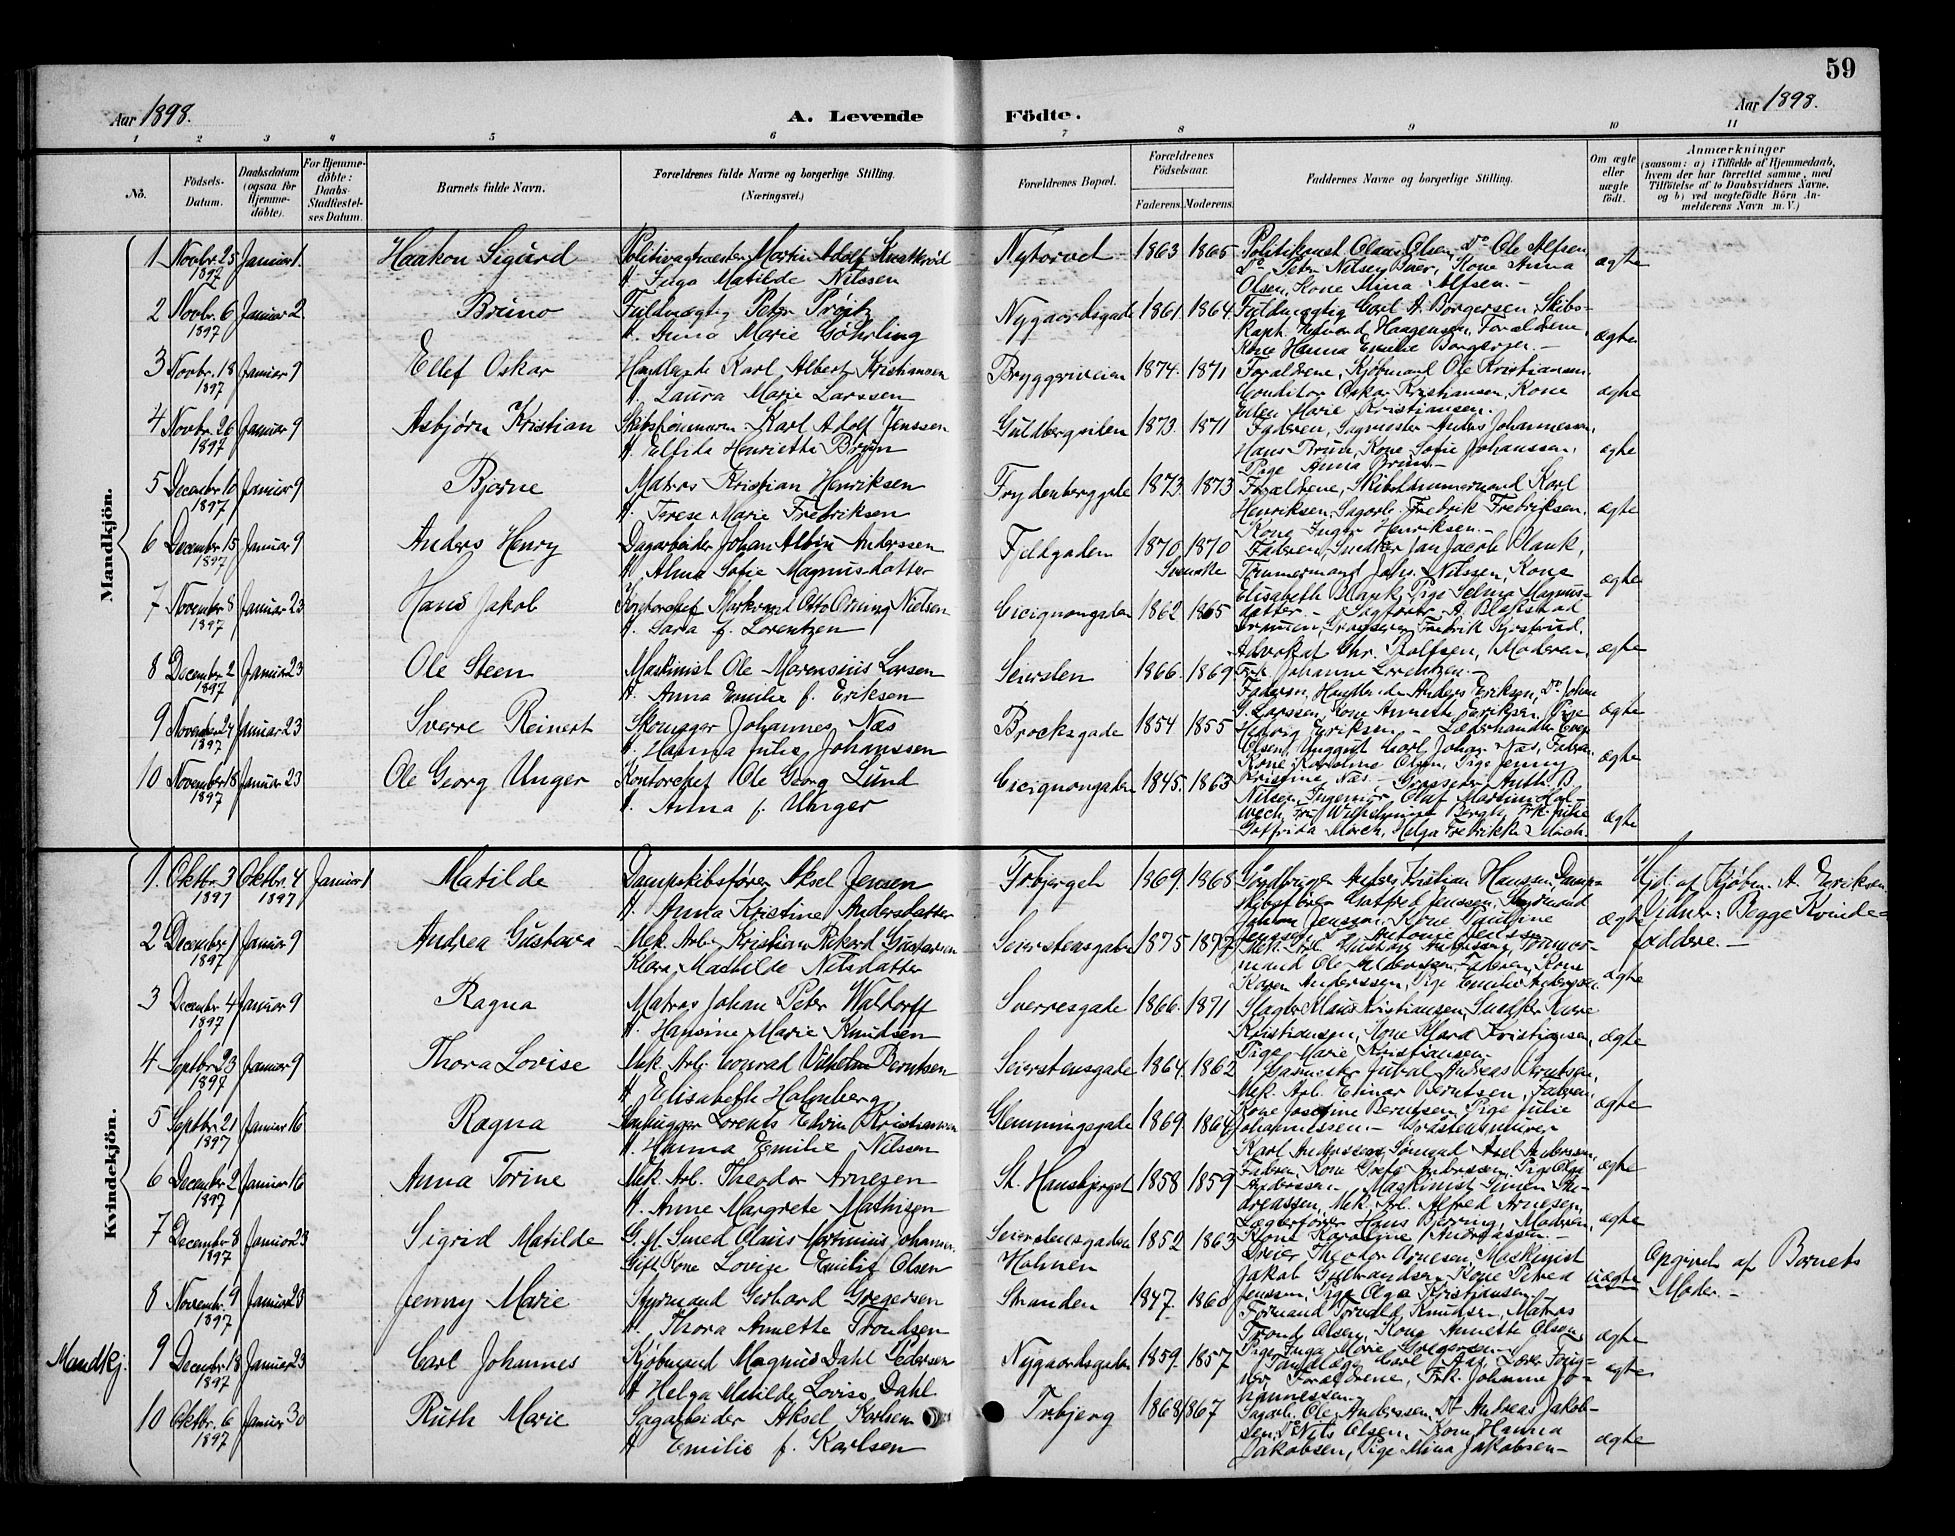 59
Aar 1898.
A. Levende Födte.
Aar 1898.
1 2 3 4 5 6 7 8 9 10 11
No.
Födsels-Datum.
Daabsdatum (ogsaa for Hjemme-döbte).
For Hjemme-döbte: Daabs-Stadfæstel-ses Datum.
Barnets fulde Navn.
Forældrenes fulde Navne og borgerlige Stilling. (Næringsvei.)
Forældrenes Bopæl.
Forældrenes Födselsaar.
Faderens. Moderens.
Faddernes Navne og borgerlige Stilling.
Om ægte eller uægte født.
Anmærkninger
(saasom: a) i Tilfælde af Hjemmedaab, hvem der har forrettet samme, med Tilföielse af to Daabsvidners Navne, og b) ved uægtefödte Börn An-melderens Navn m. V.)
Mandkjön.
1 Novbr. 25 1897 Januar 1. Haakon Sigurd Politivagtmester Martin Adolf
H. Inga Matilde Nilssen
Nytorvet 1863 1865 Politikonst. Olaus Olsen, Do Ole Alfsen
Do Peter Nilsen Buer, Kone Anna
Olsen, Kone Mina Alfsen. -
ægte
2 Novbr. 6 1897 Januar 2 Bruno Fuldmægtig Peter
H. Anna Marie
Nygaardsgade 1861. 1864. Fuldmægtig Carl A. Borgersen, Skibs-
Kapt. Edvard Haagensen, Forældrene,
Kone Hanna Emilie Borgersen. -
ægte
3 Novbr. 18 1897 Januar 9 Ellef Oskar Handlende Karl Albert Kristiansen
H. Laura Marie Larssen
Bryggeriveien 1874. 1871 Forældrene, Kjøbmand Ole Kristiansen
Conditor Oskar Kristiansen, Kone
Ellen Marie Kristiansen.
ægte
4 Novbr. 26 1897 Januar 9 Asbjørn Kristian Skibstømmerm. Karl Adolf Jenssen
H. Elfida Henriette Bruun
Guldbergsilen 1873. 1871 Faderen, Sagmester Anders Johannessen,
Hans Bruun, Kone Sofie Johanssen,
Pige Anna Bruun -
ægte
5 Decembr. 10 1897 Januar 9 Bjarne Matros Kristian Henriksen
H. Terese Marie Fredriksen
Frydenberggade 1873. 1873 Forældrene, Skibstømmermand Karl
Henriksen, Sagarb. Fredrik Fredriksen,
Kone Inger Henriksen. -
ægte
6 Decembr. 15 1897 Januar 9 Anders Henry Dagarbeider Johan Albin Anderssen
H. Alma Sofie Magnusdatter
Fjeldgaden 1870 1870 Svenske Faderen, Snedker Jan Jacob Blank,
Tømmermand Johs. Nilssen, Kone
Elisabeth Blank, Pige Selma Magnus-
datter. -
ægte
7 November 8 1897 Januar 23 Hans Jakob Kontorchef Markvard Otto Nielsen
H. Sara f. Lorentzen
Cicignongaden 1862 1865 Sagfører A. Blakstad
Grosserer Fredrik Kjølstad,
Advokat Chr. Rolfsen, Moderen,
Frk. Johanne Lorentzen. -
ægte
8 Decembr. 2 1897 Januar 23 Ole Steen Maskinist Ole Marensius Larsen
H. Anna Emilie f. Eriksen
Seiersten 1866. 1869 Faderen, Handlende Anders Eriksen, Do Johan
G. Larssen, Kone Annette Eriksen, Pige
Hedvig Eriksen -
ægte
9 November 24 1897 Januar 23 Sverre Reinert Skomager Johannes Næs
H. Hanna Julie Johanssen
Brocksgade 1854 1855 Læderhandler Even
Olsen, Ungguut Carl Johan Næs, Faderen,
Kone Karoline Olsen, Pige Jenny
Kristine Næs. -
ægte
10 November 18 1897 Januar 23 Ole Georg Unger Kontorchef Ole Georg Lund
H. Anna f. Unger
Cicignongaden 1845. 1863 Grosserer Anth. B.
Nilsen, Ingeniør Olaf Martin
Fru Wilhelmine Bergh, Frk. Julie
Gotfrida Mørch, Helga Fredrikke Mørch.
ægte
Kvindekjön.
1. Oktbr. 3 1897 Oktbr. 4 1897 Januar 1 Matilde Dampskibsfører Aksel Jensen
H. Anna Kristine Andersdatter
Trbjerget 1869. 1868 Gaardbruger Anders Kristian Hanssen, Damp-
Jenssen, Styrmand
Johan Jenssen, Kone Pauline
ægte
Hjd. af Kjøbm. A. Eriksen.
Vidner: Begge Kvinde-
faddere. -
2 Decembr. 1 1897 Januar 9 Andrea Gustava Mek. Arb. Kristian Rikard Gustavsen
Klara Mathilde Nilsdatter
Seierstensgade 1875 1877 Mek. Arb. Gustav Andersen, Tømmer-
mand Ole Anderssen, Faderen, Kone
Karen Anderssen, Pige Emilie Anderssen.
ægte
3 Decembr. 4 1897 Januar 9 Ragna Matros Johan Peter Waldorff
H. Hansine Marie Knudsen
Sverresgade 1866. 1871 Slagter Klaus Kristiansen, Snedker
Kristiansen, Kone Klara Kristiansen,
Pige Marie Kristiansen.
ægte
4 Septbr. 23 1897 Januar 9 Thora Lovise Mek. Arb. Conrad Vilhelm Berntsen
H. Elisabeth Holmberg
Seierstensgade 1864. 1862 Gasmester Andreas Berntsen,
Mek. Arb. Einar Berntsen, Faderen,
Kone Josefine Berntsen, Pige Julie
Johannessen. -
ægte
5 Septbr. 21 1897 Januar 16 Ragna Stenhugger Lorents Edvin Kristiansen
H. Hanna Emilie Nilssen
Glemmingegade 1869. 1864
Karl Anderssen, Sømand Axel Anderssen,
Faderen, Kone Grete Anderssen, Pige Olga
Anderssen. -
ægte
6 Decembr. 2 1897 Januar 16 Anna Torine Mek. Arb. Theodor Arnesen
H. Anne Margrete Mathisen
St. Hansbjerget 1858 1859 Maskinist Simen An-
dreassen, Mek. Arb. Alfred Arnesen,
Lægterfører Hans Bjerring, Moderen,
Kone Karoline Andreassen. -
ægte
7 Decembr. 8 1897 Januar 23 Sigrid Matilde G. M. Smed Olaus Martinius Johansen.
Gift Kone Lovise Emilie Olsen
Seierstensgaden Holmen 1852 1863 Dreier Theodor Arnesen, Maskinist
Jakob Gulbrandsen, Kone Petrea
Jenssen, Pige Olga Kristiansen.
uægte
Opgivet af Barnets
Moder. -
8 Novembr. 9 1897 Januar 23 Jenny Marie Styrmand Gerhard Gregersen
H. Thora Annette Trondsen
Stranden 1847. 1860 Formand Torvald Knudsen, Matros
Trond Olsen, Kone Annette Olsen,
Pige Inga Marie Gregersen.
ægte
Mandkj. 9 Decembr. 18 1897 Januar 23 Carl Johannes Kjøbmand Magnus Dahl Pedersen
H. Helga Matilde Lovise Dahl
Nygaardsgaden 1859. 1857 Tandlæge Carl
Forældrene, Frk. Johanne Jo-
hannessen.
ægte
10 Oktbr. 6 1897 Januar 30 Ruth Marie Sagarbeider Aksel Karlsen
H. Emilie f. Karlsen
Trbjerg 1868 1867 Sagarb. Ole Anderssen, Do Andreas Jakob-
sen, Do Nils Olsen, Kone Hanna
Jakobsen, Pige Mina Jakobsen -
ægte